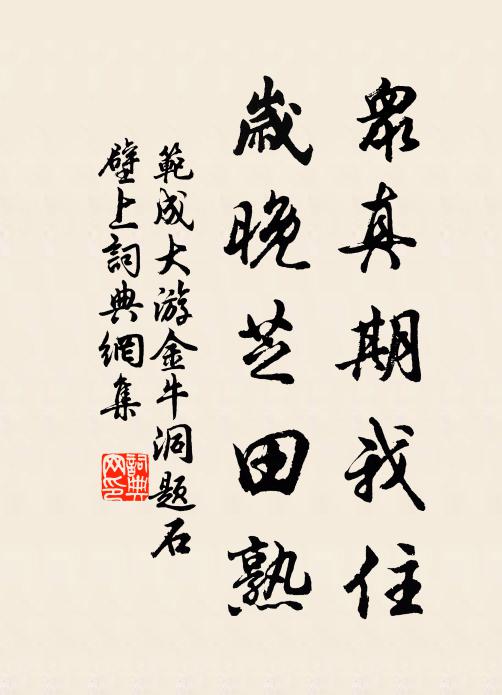 眾真期我住
歲晚芝田熟
範成大游金牛洞題石
壁上詞典網集
詞典網印